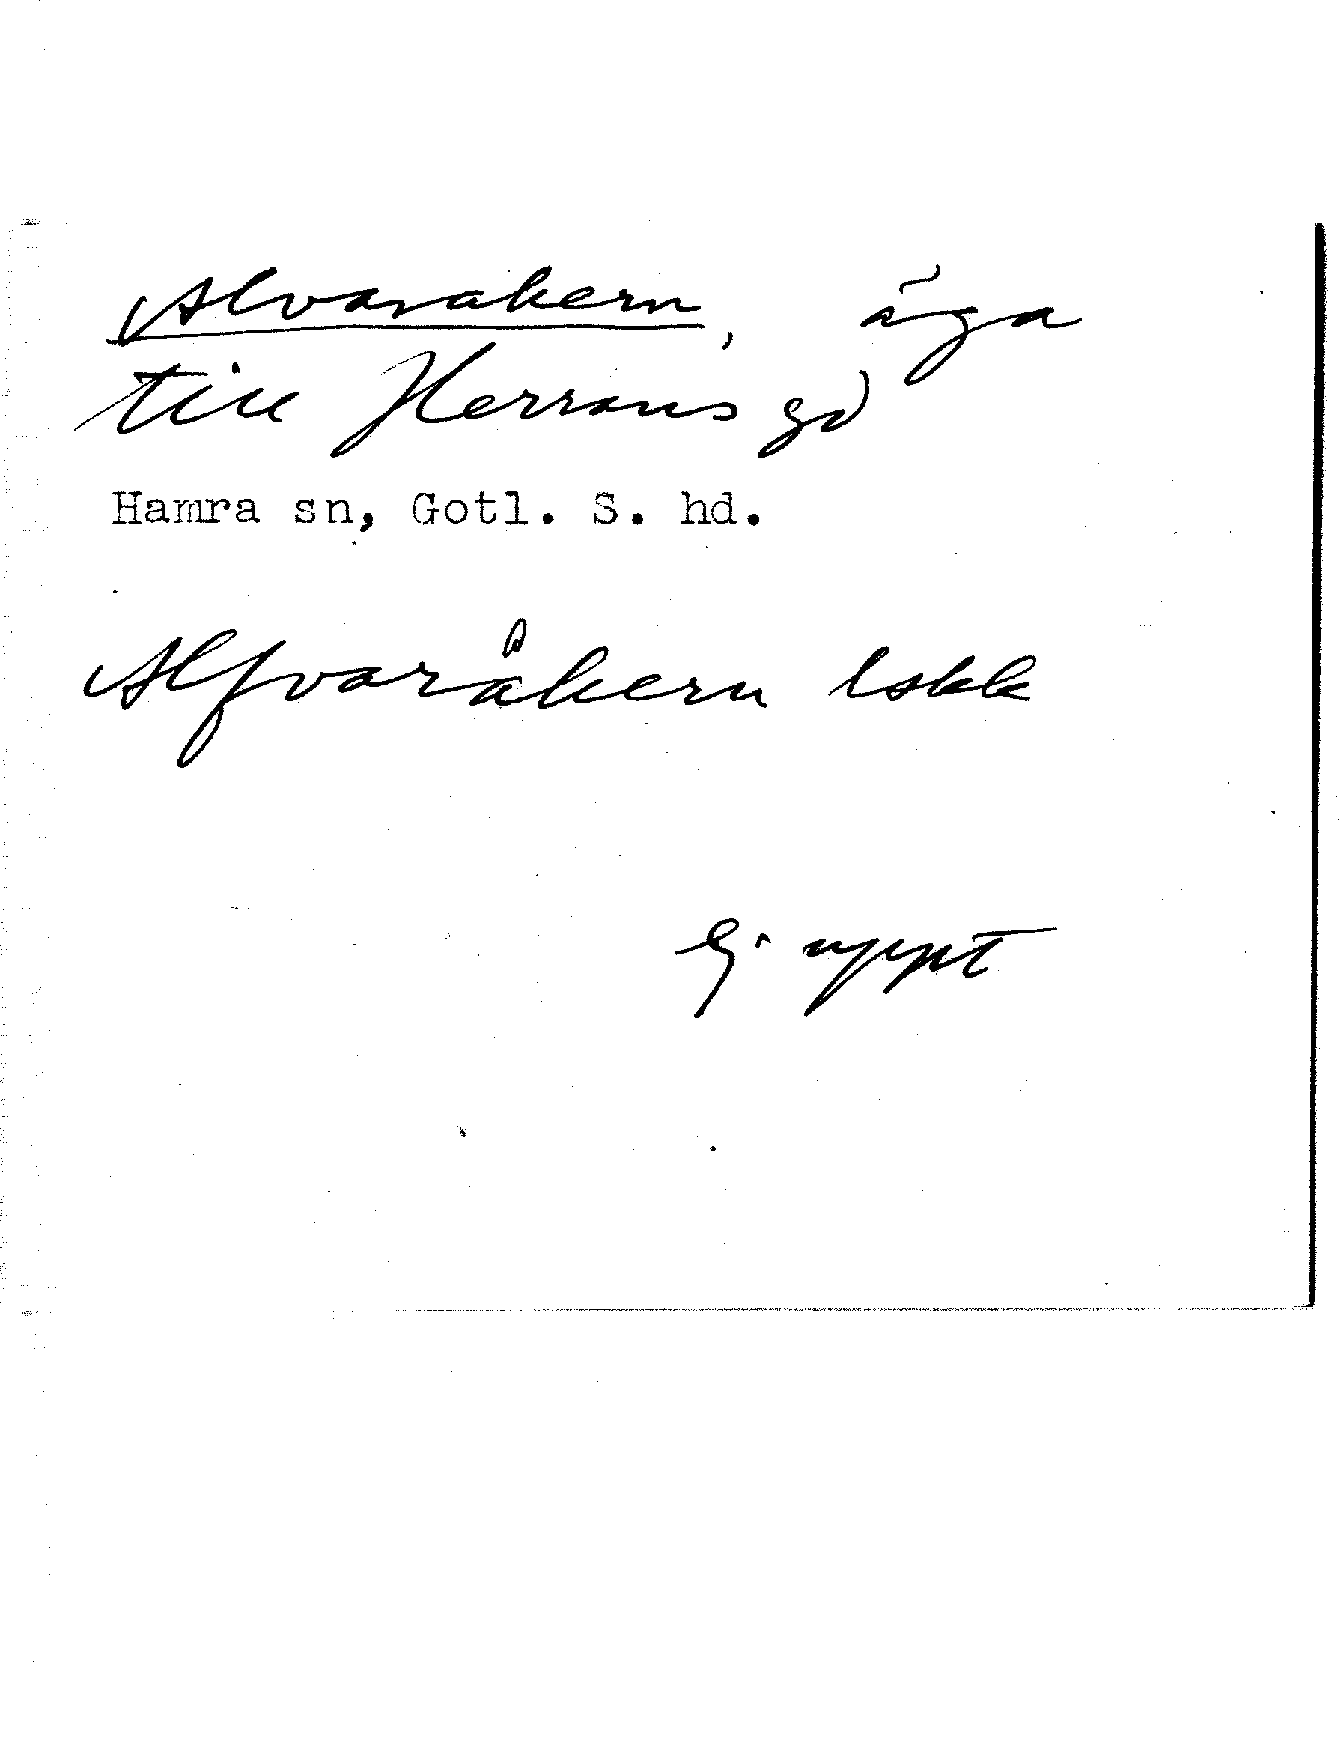 Alvarakern, äga
till Herrans gd
Hamra sn, Gotl. S. hd.
Alfvaråkern lskk
Ej uppt